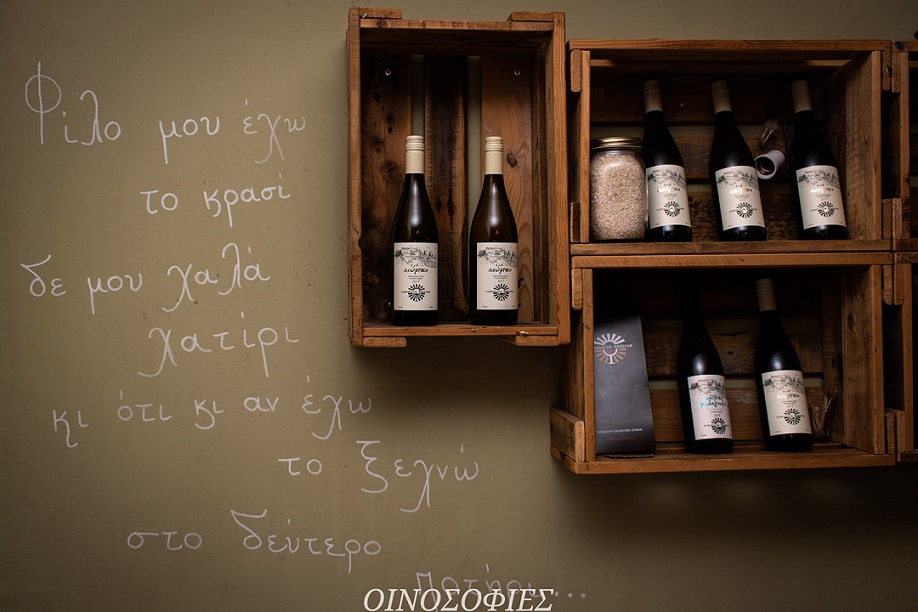 Φίλο μου έχω
το κρασί
δε μου χαλά
χατίρι
κι ότι κι αν έχω
το ξεχνώ
στο δεύτερο
ποτήρι...
ΟΙΝΟΣΟΦΙΕΣ